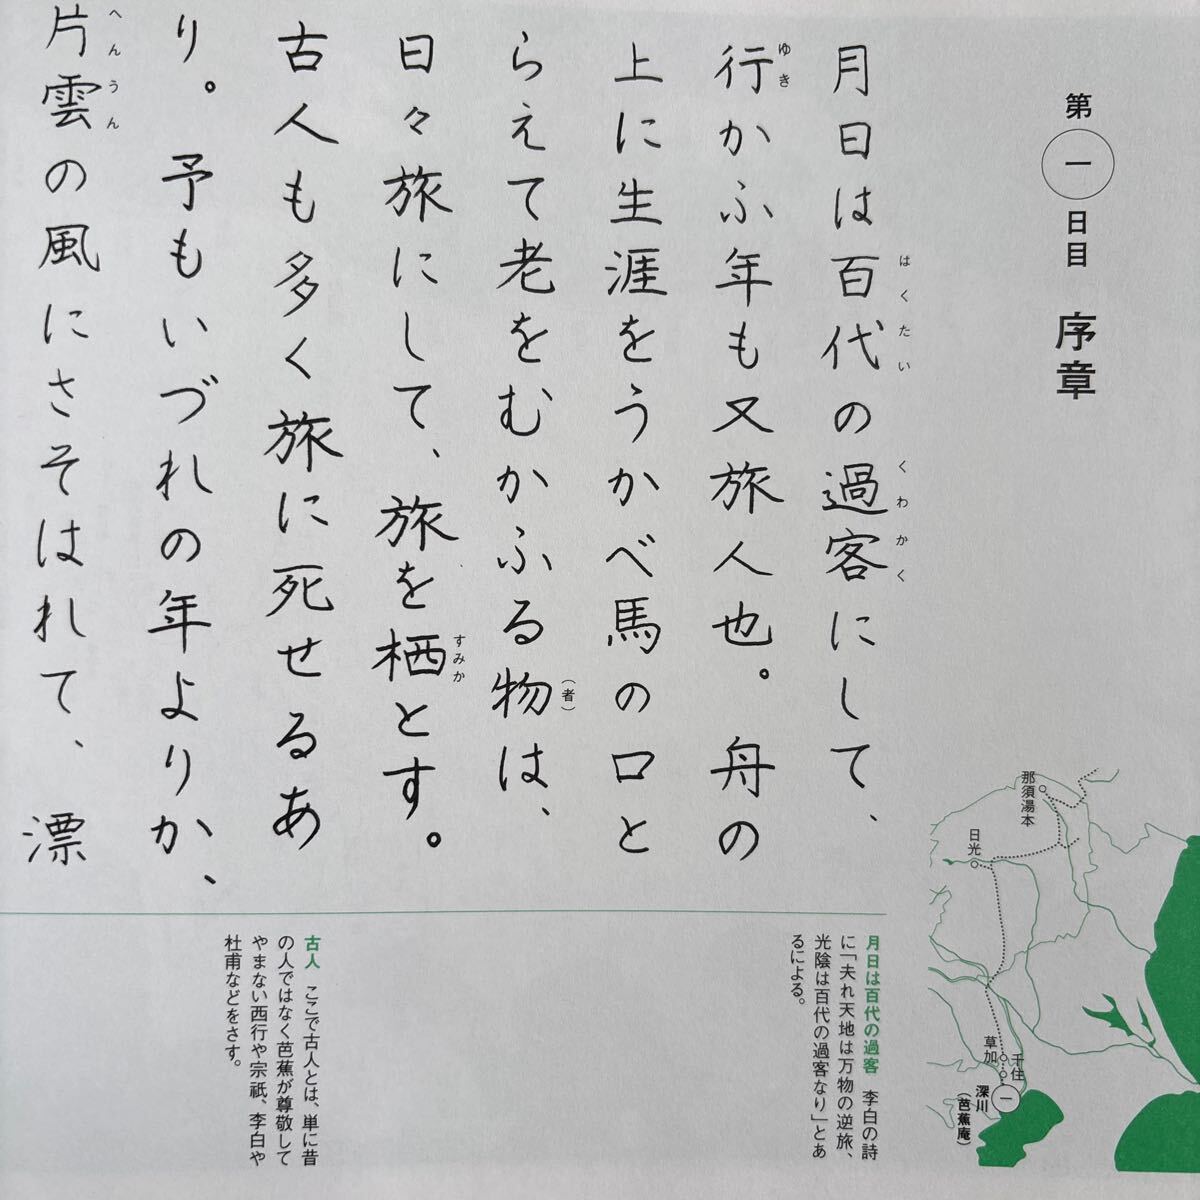 第一日目 序章
月日は百代の過客にして、
はくたい
くわかく
行かふ年も又旅人也。舟の
ゆき
上に生涯をうかべ馬の口と
らえて老をむかふる物は、
(者)
日々旅にして、旅を栖とす。
すみか
古人も多く旅に死せるあ
り。予もいづれの年よりか、
片雲の風にさそはれて、漂
へんうん
月日は百代の過客 李白の詩
に「夫れ天地は万物の逆旅、
光陰は百代の過客なり」とあ
るによる。
古人 ここで古人とは、単に昔
の人ではなく芭蕉が尊敬して
やまない西行や宗祇、李白や
杜甫などをさす。
那須湯本
日光
草加
千住
一
深川
(芭蕉庵)